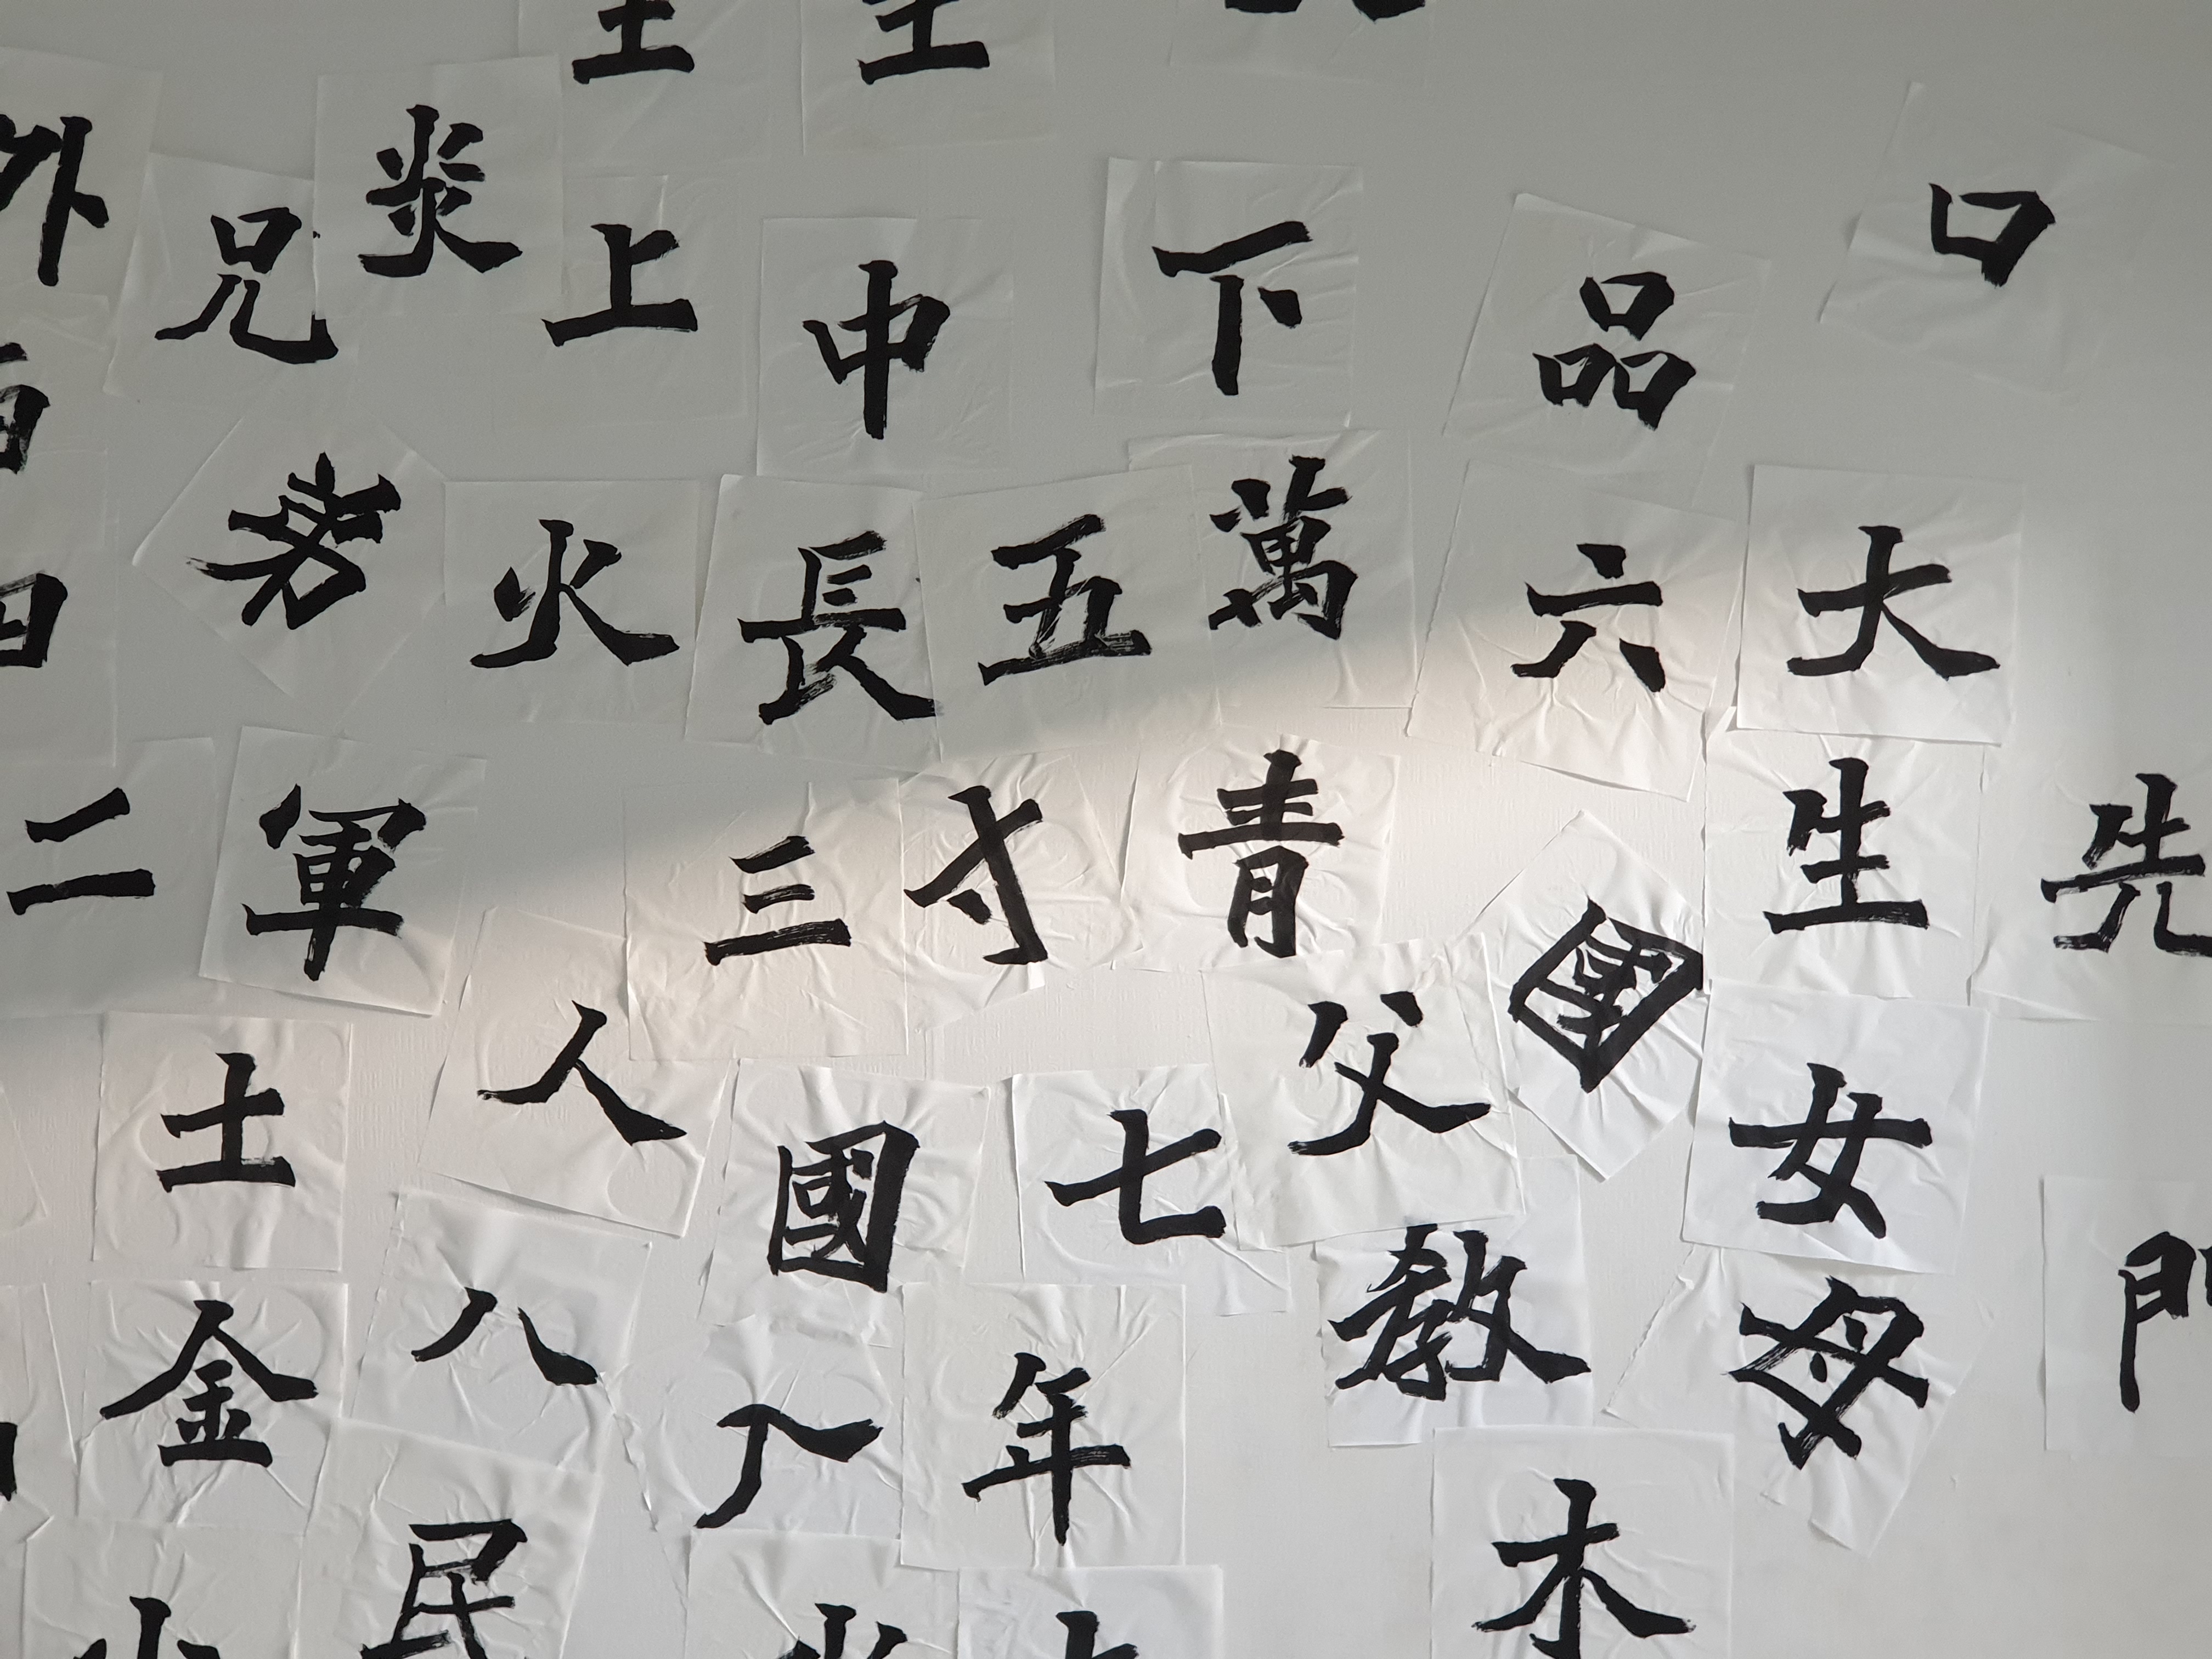 外 兄 炎 上 中 下 品 口
火 長 五 萬 六 大
二 軍 三 寸 青 生 先
土 人 國 七 父 女 門
金 八 年 教 母
民 木